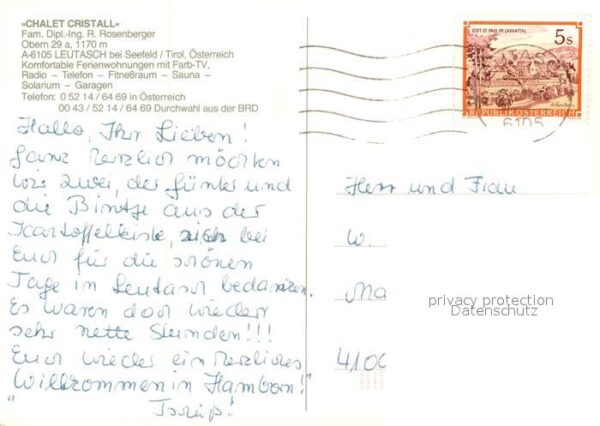 »CHALET CRISTALL«
Fam. Dipl.-Ing. R. Rosenberger
Obern 29 a, 1170 m
A-6105 LEUTASCH bei Seefeld / Tirol, Österreich
Komfortable Ferienwohnungen mit Farb-TV,
Radio – Telefon – Fitneßraum – Sauna –
Solarium – Garagen
Telefon: 0 52 14 / 64 69 in Österreich
00 43 / 52 14 / 64 69 Durchwahl aus der BRD
Hallo, Ihr Lieben!
Ganz herzlich möchten
wir zwei, der Günter und
die Bintje aus der
Kartoffelkiste, sich bei
Euch für die schönen
Tage in Leutasch bedanken.
Es waren doch wieder
sehr nette Stunden!!!
Euch wieder ein herzliches
"Willkommen in Hamborn!"
Tschüß!
STIFT ST. PAUL IM LAVANTTAL
5s
REPUBLIK ÖSTERREICH
6105
Herr und Frau
W.
Ma
4100
privacy protection
Datenschutz